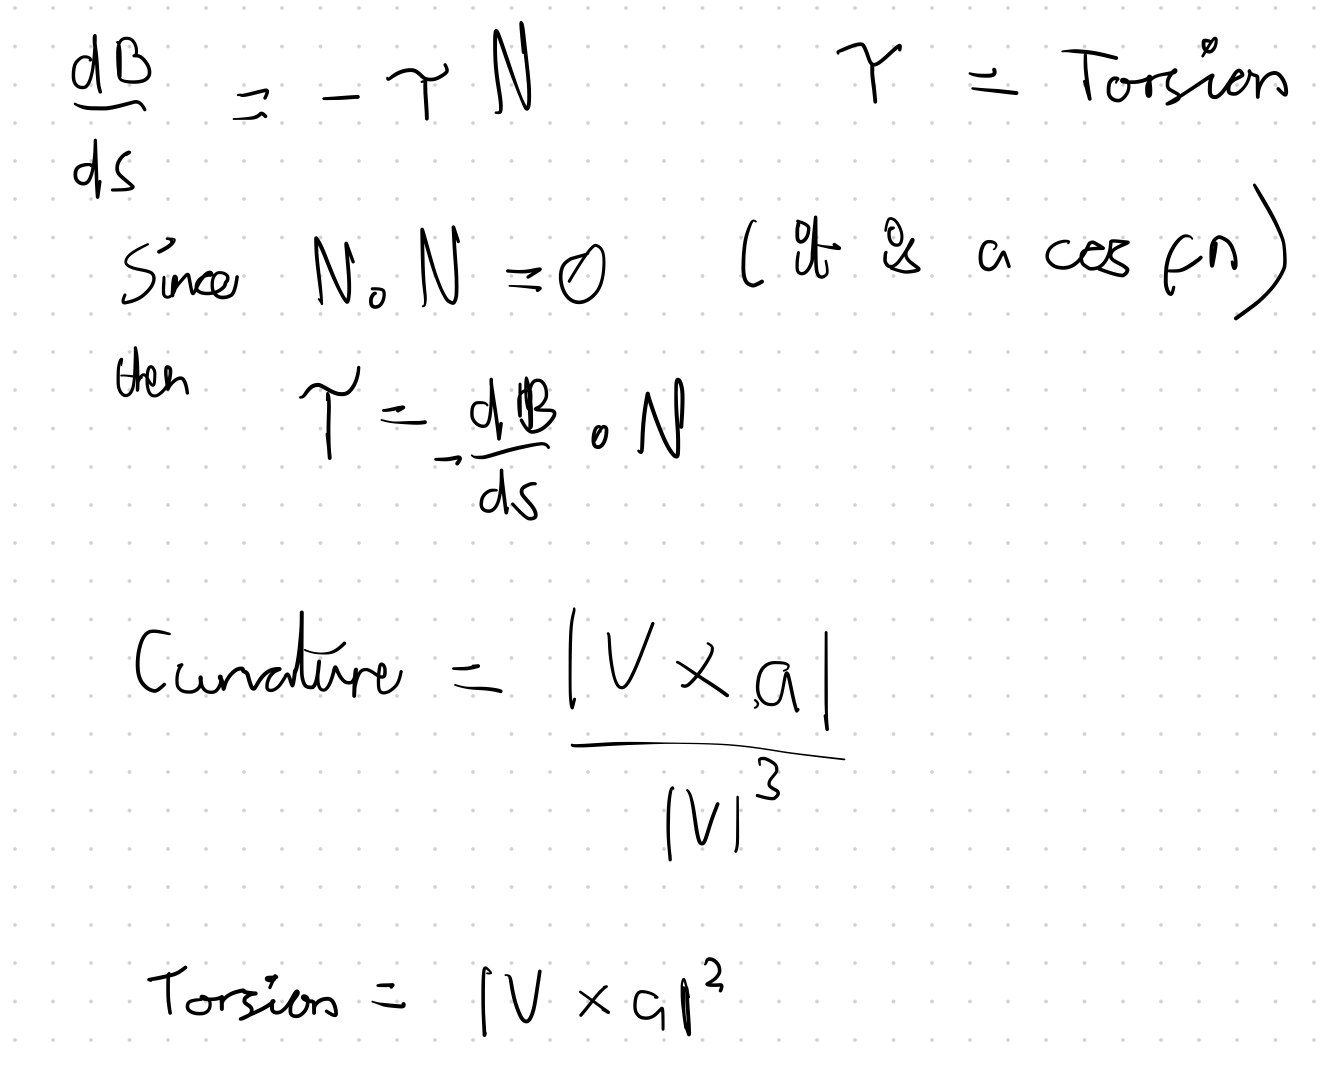 dB/ds = - τ N    τ = Torsion
Since N . N = 0    (it is a cos fn)
then τ = - dB/ds . N
Curvature = |V × a| / |V|³
Torsion = |V × a|²